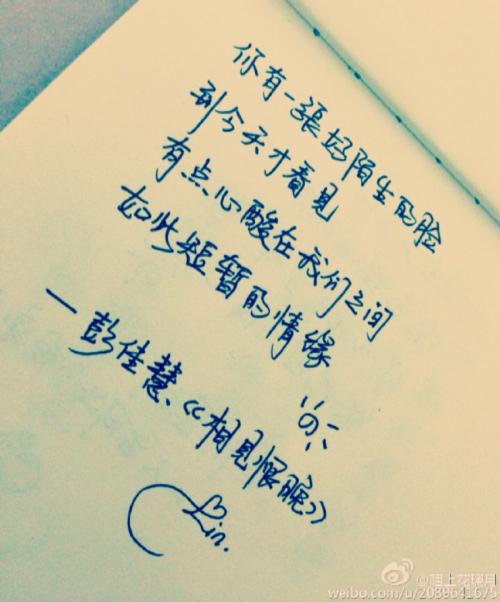 你有一張好陌生的脸
到今天才看見
有点心酸在我们之间
如此短暂的情缘
一彭佳慧《相見恨晚》
Lin.
@陌上花璃月
weibo.com/u/2039641675